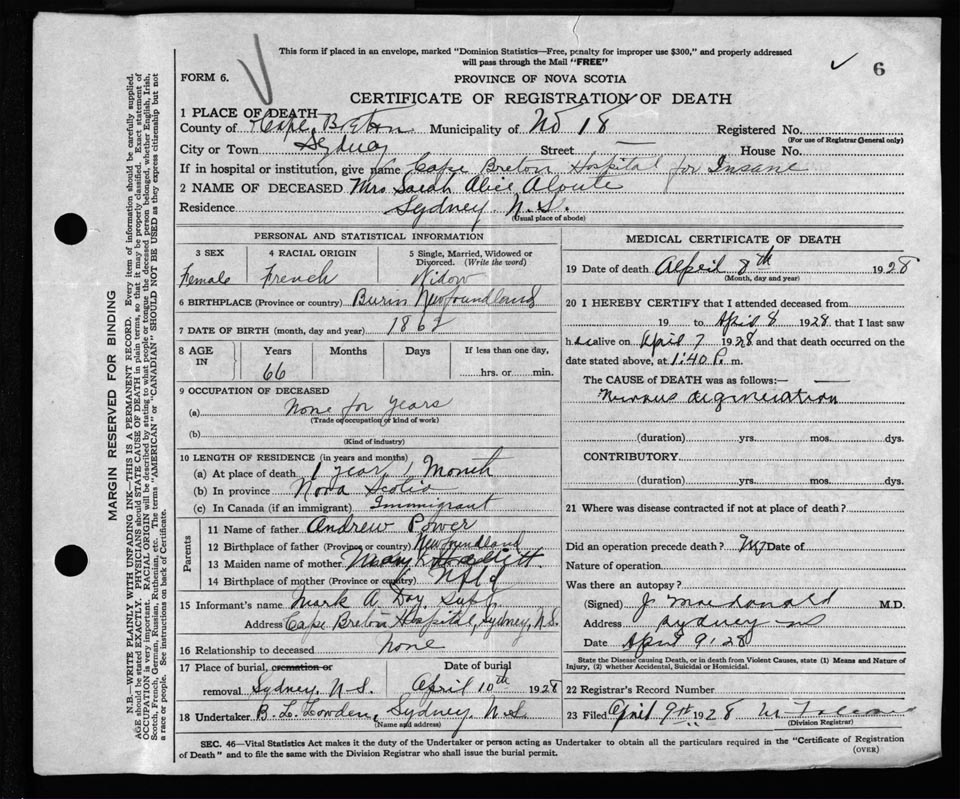 This form if placed in an envelope, marked "Dominion Statistics—Free, penalty for improper use $300," and properly addressed
will pass through the Mail "FREE"
6
FORM 6.
PROVINCE OF NOVA SCOTIA
CERTIFICATE OF REGISTRATION OF DEATH
1 PLACE OF DEATH
County of Cape Breton Municipality of No 18 Registered No.
(For use of Registrar General only)
City or Town Sydney Street House No.
If in hospital or institution, give name Cape Breton Hospital for Insane
2 NAME OF DECEASED Mrs Sarah Alice
Residence Sydney N.S.
(Usual place of abode)
PERSONAL AND STATISTICAL INFORMATION
3 SEX Female
4 RACIAL ORIGIN French
5 Single, Married, Widowed or Divorced. (Write the word) Widow
6 BIRTHPLACE (Province or country) Burin Newfoundland
7 DATE OF BIRTH (month, day and year) 1862
8 AGE IN Years Months Days If less than one day,
66 hrs. or min.
9 OCCUPATION OF DECEASED
(a) None for years
(Trade or occupation or kind of work)
(b)
(Kind of industry)
10 LENGTH OF RESIDENCE (in years and months)
(a) At place of death 1 year 1 Month
(b) In province Nova Scotia
(c) In Canada (if an immigrant) Immigrant
Parents
11 Name of father Andrew Power
12 Birthplace of father (Province or country) Newfoundland
13 Maiden name of mother Mary
14 Birthplace of mother (Province or country) Nfld
15 Informant's name Mark A. Day. Supt
Address Cape Breton Hospital, Sydney, N.S.
16 Relationship to deceased None
17 Place of burial, cremation or Date of burial
removal Sydney. N.S. April 10th 1928
18 Undertaker B. L. Lowden, Sydney. N.S.
(Name and address)
MEDICAL CERTIFICATE OF DEATH
19 Date of death April 8th 1928
(Month, day and year)
20 I HEREBY CERTIFY that I attended deceased from
19 to April 8 1928, that I last saw
alive on April 7 1928 and that death occurred on the
date stated above, at 1:40 P. m.
The CAUSE OF DEATH was as follows:—
degeneration
(duration) yrs. mos. dys.
CONTRIBUTORY
(duration) yrs. mos. dys.
21 Where was disease contracted if not at place of death?
Did an operation precede death? No Date of
Nature of operation
Was there an autopsy?
(Signed) J Macdonald M.D.
Address Sydney NS
Date April 9. 28
State the Disease causing Death, or in death from Violent Causes, state (1) Means and Nature of
Injury, (2) whether Accidental, Suicidal or Homicidal.
22 Registrar's Record Number
23 Filed April 9th 1928
(Division Registrar)
SEC. 46—Vital Statistics Act makes it the duty of the Undertaker or person acting as Undertaker to obtain all the particulars required in the "Certificate of Registration
of Death" and to file the same with the Division Registrar who shall issue the burial permit.
(OVER)
MARGIN RESERVED FOR BINDING
N.B.—WRITE PLAINLY WITH UNFADING INK—THIS IS A PERMANENT RECORD. Every item of information should be carefully supplied.
AGE should be stated EXACTLY. PHYSICIANS should STATE CAUSE OF DEATH in plain terms, so that it may be properly classified. Exact statement of
OCCUPATION is very important. RACIAL ORIGIN will be described by stating to what people or tongue the deceased person belonged, whether English, Irish,
Scotch, French, German, Russian, Ruthenian, etc. The terms "AMERICAN" or "CANADIAN" SHOULD NOT BE USED as they express citizenship but not
a race or people. See instructions on back of Certificate.